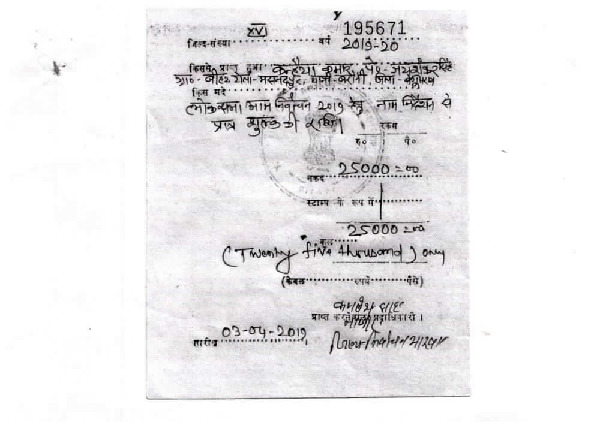 XVI 195671
जिल्द-संख्या वर्ष 2019-20
किससे प्राप्त हुआ कन्हैया कुमार, पे० जयशंकर सिंह
ग्राम- बीहट टोला-मसनदपुर, थाना-बरौनी जिला-बेगूसराय
किस मद्दे
लोकसभा आम निर्वाचन 2019 हेतु नाम निर्देशन से
प्राप्त शुल्क की राशि। रकम
रु० पै०
नकद 25000=00
स्टाम्प के रूप में
कुल 25000=00
(Twenty five thousand) only
(केवल रुपये पैसे)
प्राप्त करने वाले पदाधिकारी।
तारीख 03-04-2019